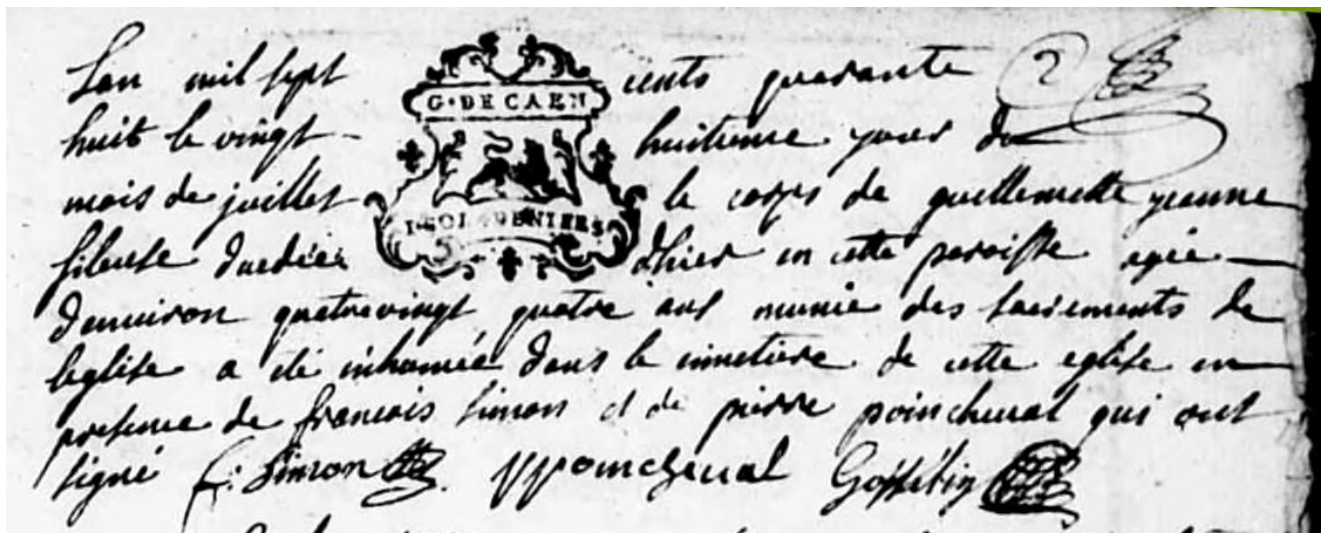 Lan mil sept cents quarante 2
G. DE CAEN
huit le vingt - huitieme jour du
mois de juillet le corps de guillemette jeanne
fileuse decedée dhier en cette paroisse agée
denuiron quatrevingt quatre ans munie des sacrements de
leglise a eté inhumée dans le cimetière de cette eglise en
presence de francois simon et de pierre poincheual qui ont
signé f: Simon p poincheual Gosselin